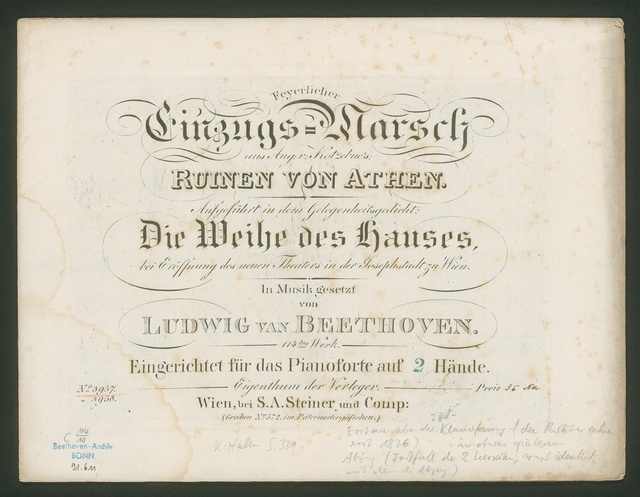 Feyerlicher
Einzugs=Marsch
aus Aug. v. Kotzebue's:
RUINEN VON ATHEN.
Aufgeführt in dem Gelegenheitsgedicht:
Die Weihe des Hauses,
bei Eröffnung des neuen Theaters in der Josephstadt zu Wien.
In Musik gesetzt
von
LUDWIG VAN BEETHOVEN.
114tes Werk.
Eingerichtet für das Pianoforte auf 2 Hände.
No 3957.
- 3958.
Eigenthum der Verleger.
Preis 35 Nx
Wien, bei S.A. Steiner und Comp:
(Graben No 572, im Paternostergässchen.)
C 114
10
Beethoven-Archiv
BONN
91.611
K-Halm S. 331
Erstausgabe der Klavierfassung
erst 1826)
in etwas späterem
Abzug
mit dem 1. Abzug)